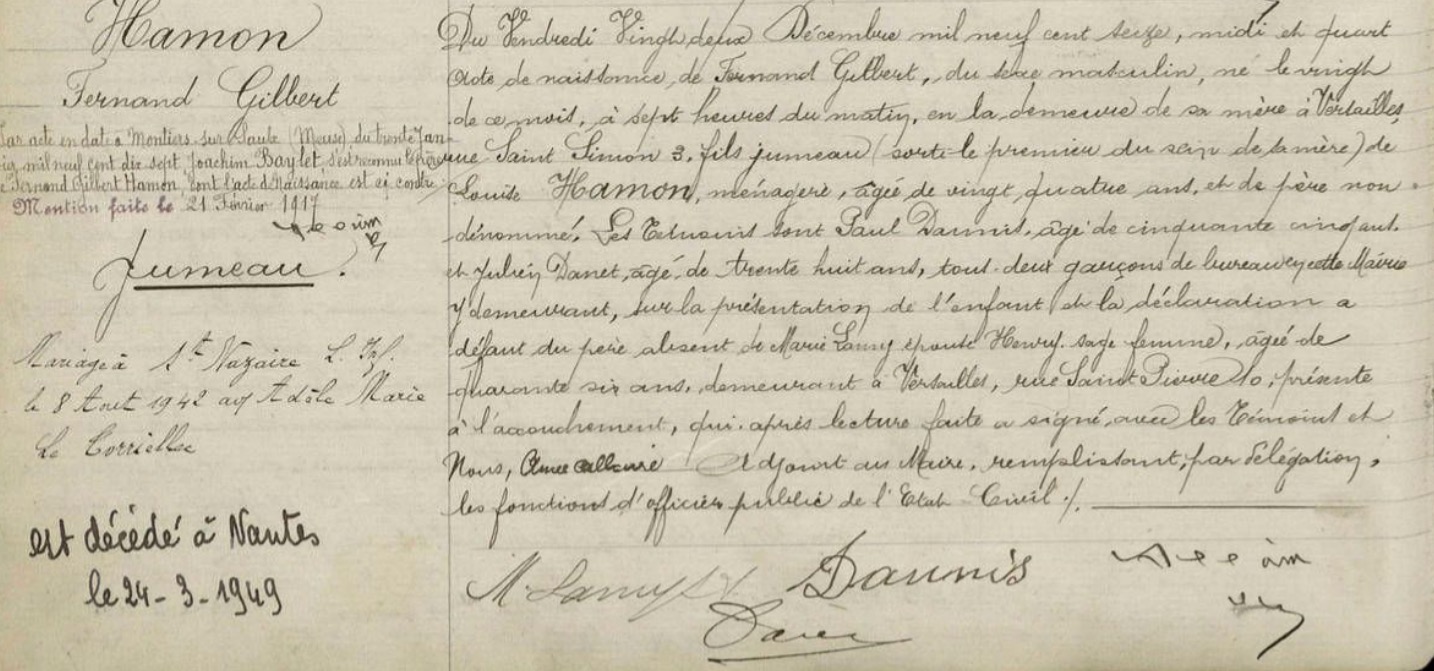 Hamon
Fernand Gilbert
Par acte en date à Montiers sur Saulx (Meuse), du trente Jan-
vier mil neuf cent dix sept, Joachim Baylet s'est reconnu le père
de Fernand Gilbert Hamon, dont l'acte de Naissance est ci contre
Mention faite le 21 Février 1917
Jumeau.
Mariage à St Nazaire L. Inf.
le 8 Aout 1942 avec Adèle Marie
Le Corriellec
est décédé à Nantes
le 24-3-1949
Du Vendredi Vingt deux Décembre mil neuf cent seize, midi et quart
acte de naissance de Fernand Gilbert, du sexe masculin, né le vingt
de ce mois, à sept heures du matin, en la demeure de sa mère à Versailles,
rue Saint Simon 3, fils jumeau (sorti le premier du sein de sa mère) de
Louise Hamon, ménagère, âgée de vingt quatre ans, et de père non
dénommé. Les Témoins sont Paul Daunis, âgé de cinquante cinq ans,
et Julien Danet, âgé de trente huit ans, tous deux garçons de bureau en cette Mairie
y demeurant, sur la présentation de l'enfant et la déclaration a
défaut du père absent de Marie Lamy épouse Henry, sage femme, âgée de
quarante six ans, demeurant à Versailles, rue Saint Pierre 10, présente
à l'accouchement, qui, après lecture faite a signé, avec les Témoins et
Nous, Adjoint au Maire, remplissant, par délégation,
les fonctions d'officier public de l'Etat-Civil ./.
M. Lamy Daunis